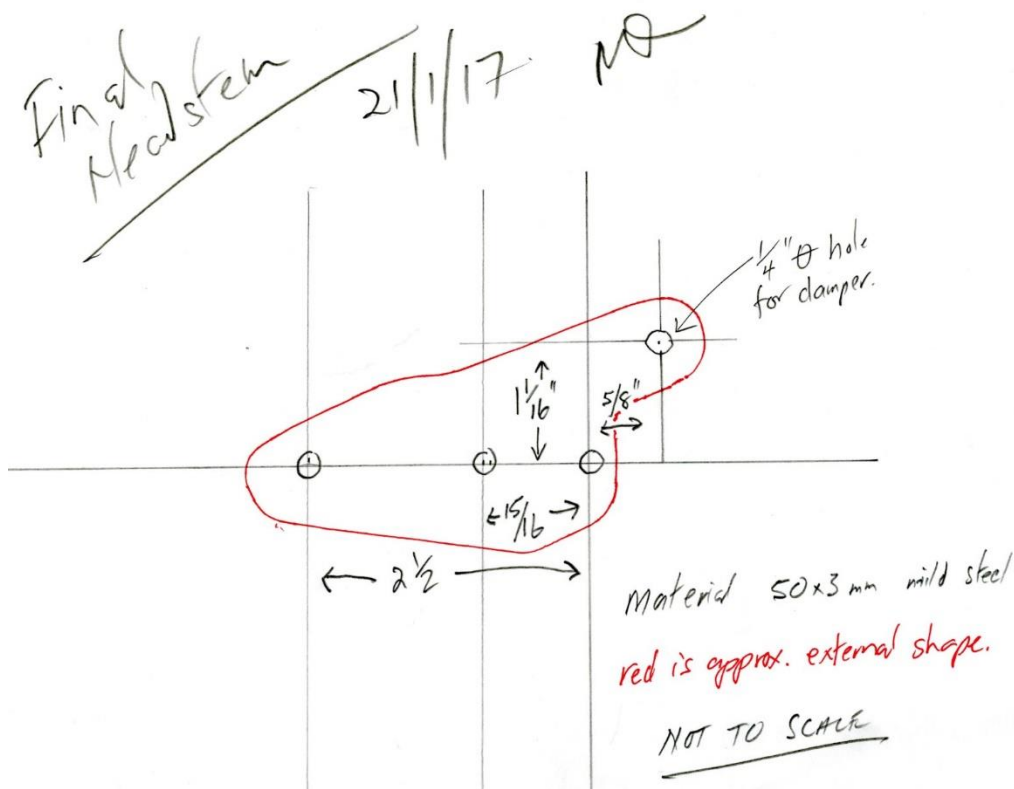 Final
Headstem
21/1/17
1/4" ø hole
for damper.
1 1/16"
5/8"
15/16
2 1/2
Material 50x3 mm mild steel
red is approx. external shape.
NOT TO SCALE